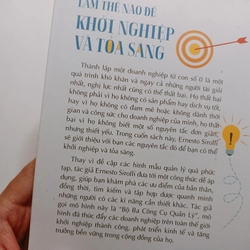 LÀM THẾ NÀO ĐỂ
KHỞI NGHIỆP
VÀ TỎA SÁNG
Thành lập một doanh nghiệp từ con số 0 là một
quá trình khó khăn và ngay cả những người tài giỏi
nhất, nghị lực nhất cũng có thể thất bại. Họ thất bại
không phải vì họ không có sản phẩm hay dịch vụ tốt,
hay vì họ không có đam mê hoặc không dành thời
gian và công sức cho doanh nghiệp của mình, họ thất
bại vì họ không biết một số nguyên tắc đơn giản
nhưng thiết yếu. Trong cuốn sách này, Ernesto Sirolli
sẽ giới thiệu với bạn các nguyên tắc đó để bạn có thể
khởi nghiệp và tỏa sáng.
Thay vì đề cập các hình mẫu quản lý quá phức
tạp, tác giả Ernesto Sirolli đưa tới một công thức dễ áp
dụng, giúp bạn khám phá các ưu điểm của bản thân,
đồng thời, tìm kiếm và tập hợp được quanh mình
những người có các kĩ năng cần thiết khác. Tác giả
gọi mô hình này là "Bộ Ba Công Cụ Quản Lý", mô
hình đã thúc đẩy các doanh nghiệp trên toàn thế giới
khởi nghiệp thành công, phát triển kinh tế và tăng
trưởng bền vững trong cộng đồng của họ.